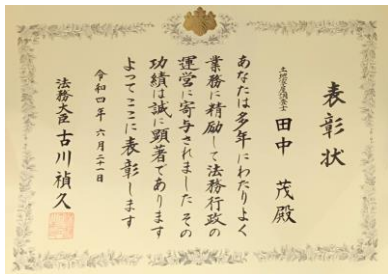 表彰状
土地家屋調査士
田中 茂殿
あなたは多年にわたりよく
業務に精励して法務行政の
運営に寄与されましたその
功績は誠に顕著であります
よってここに表彰します
令和四年六月二十一日
法務大臣 古川禎久